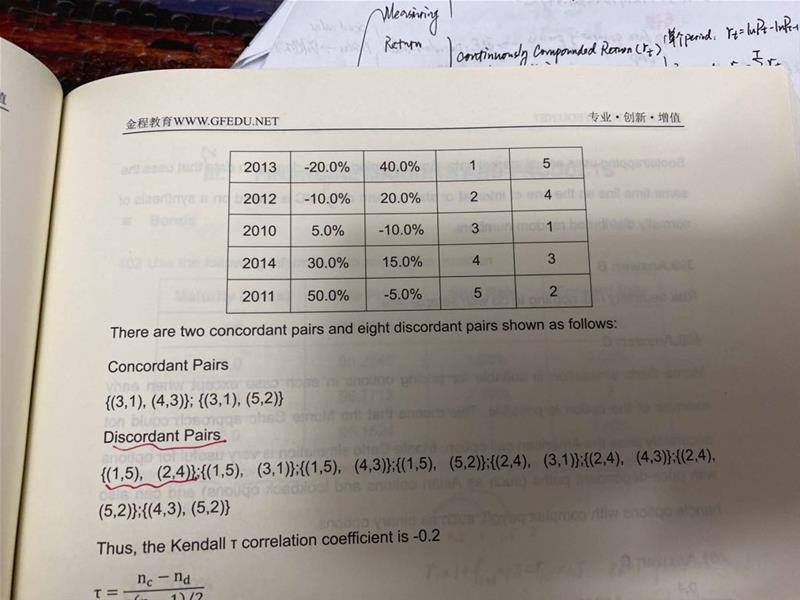 Measuring
Return
Continuously Compounded Return (rt)
单个period: rt = lnPt - lnPt-1
金程教育WWW.GFEDU.NET
专业·创新·增值
2013 -20.0% 40.0% 1 5
2012 -10.0% 20.0% 2 4
2010 5.0% -10.0% 3 1
2014 30.0% 15.0% 4 3
2011 50.0% -5.0% 5 2
There are two concordant pairs and eight discordant pairs shown as follows:
Concordant Pairs
{(3,1), (4,3)}; {(3,1), (5,2)}
Discordant Pairs
{(1,5), (2,4)};{(1,5), (3,1)};{(1,5), (4,3)};{(1,5), (5,2)};{(2,4), (3,1)};{(2,4), (4,3)};{(2,4),
(5,2)};{(4,3), (5,2)}
Thus, the Kendall τ correlation coefficient is -0.2
τ = nc − nd